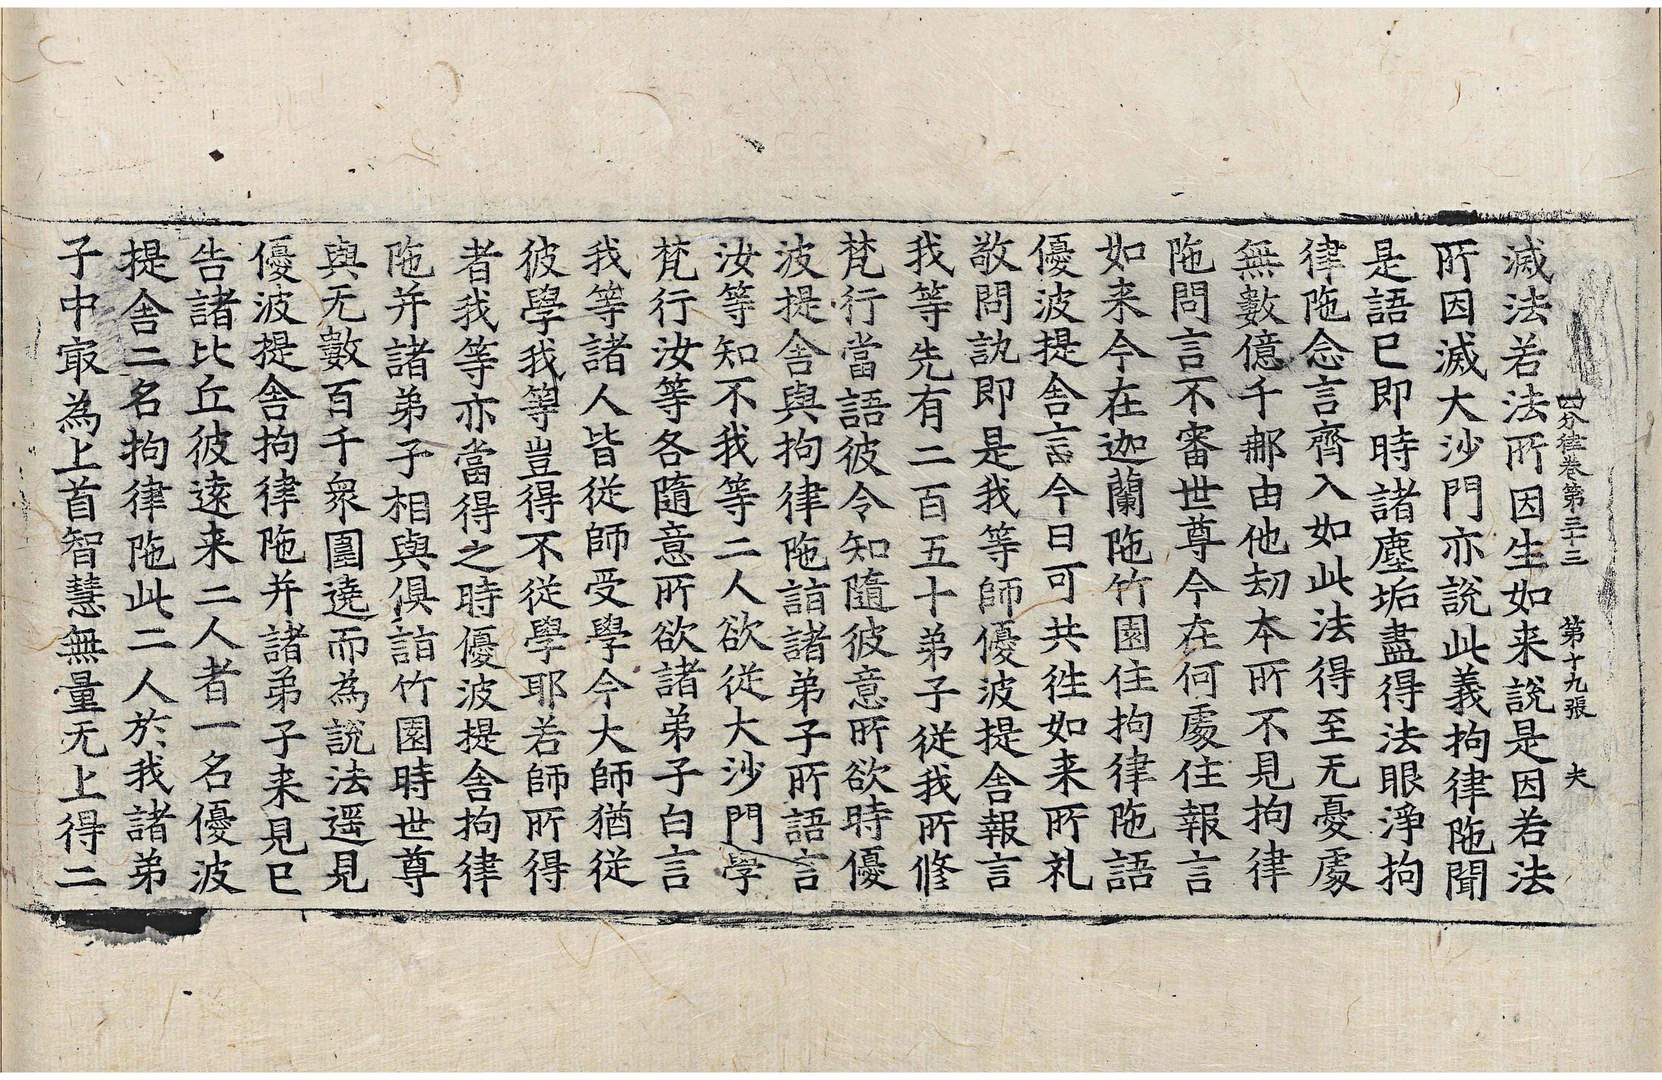 四分律卷第三十三 第十九張 夫
滅法若法所因生如来說是因若法
所因滅大沙門亦說此義拘律陁聞
是語已即時諸塵垢盡得法眼淨拘
律陁念言齊入如此法得至无憂處
無數億千那由他劫本所不見拘律
陁問言不審世尊今在何處住報言
如来今在迦蘭陁竹園住拘律陁語
優波提舍言今日可共徃如来所礼
敬問訊即是我等師優波提舍報言
我等先有二百五十弟子従我所修
梵行當語彼令知隨彼意所欲時優
波提舍與拘律陁詣諸弟子所語言
汝等知不我等二人欲従大沙門學
梵行汝等各隨意所欲諸弟子白言
我等諸人皆従師受學今大師猶従
彼學我等豈得不従學耶若師所得
者我等亦當得之時優波提舍拘律
陁并諸弟子相與俱詣竹園時世尊
與无數百千衆圍遶而為說法遥見
優波提舍拘律陁并諸弟子来見已
告諸比丘彼遠来二人者一名優波
提舍二名拘律陁此二人於我諸弟
子中冣為上首智慧無量无上得二